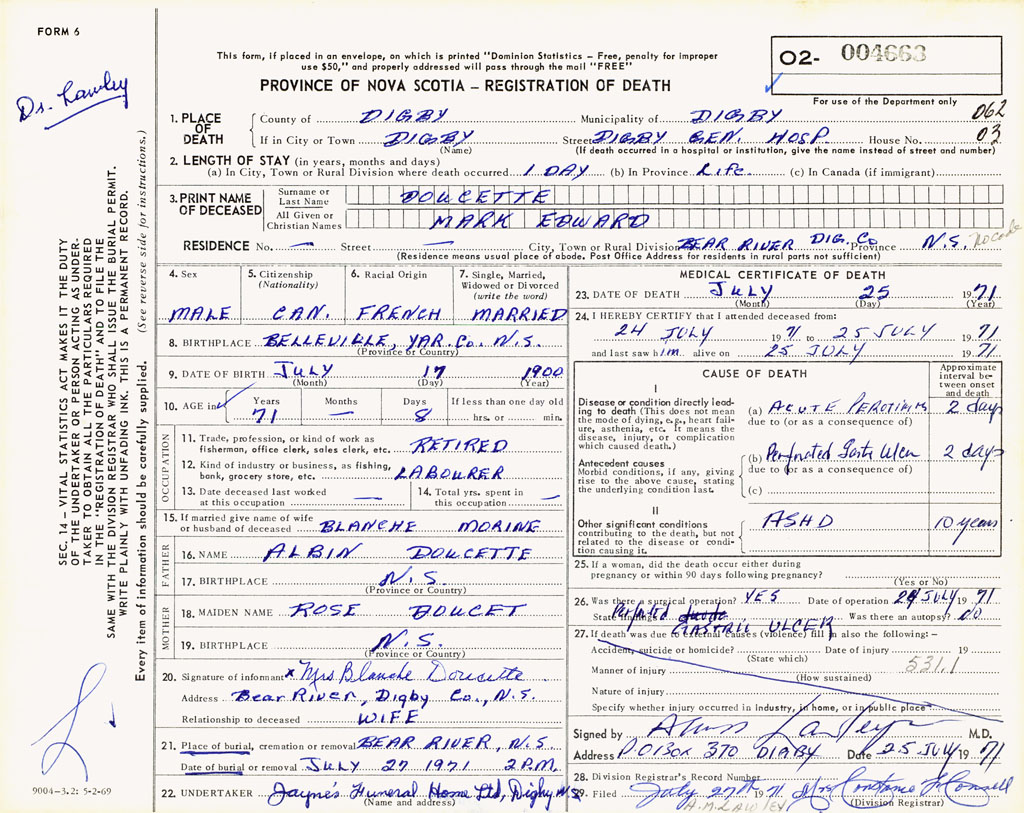 FORM 6
Ds. Lawley
This form, if placed in an envelope, on which is printed "Dominion Statistics – Free, penalty for improper
use $50," and properly addressed will pass through the mail "FREE"
PROVINCE OF NOVA SCOTIA – REGISTRATION OF DEATH
O2- 004663
For use of the Department only
062
03
1. PLACE OF DEATH County of DIGBY Municipality of DIGBY
If in City or Town DIGBY Street DIGBY GEN. HOSP. House No.
(Name) (If death occurred in a hospital or institution, give the name instead of street and number)
2. LENGTH OF STAY (in years, months and days)
(a) In City, Town or Rural Division where death occurred 1 DAY (b) In Province Life. (c) In Canada (if immigrant)
3. PRINT NAME OF DECEASED Surname or Last Name DOUCETTE
All Given or Christian Names MARK EDWARD
RESIDENCE No. — Street — City, Town or Rural Division BEAR RIVER DIG. Co Province N.S. No code
(Residence means usual place of abode. Post Office Address for residents in rural parts not sufficient)
4. Sex
MALE
5. Citizenship
(Nationality)
CAN.
6. Racial Origin
FRENCH
7. Single, Married,
Widowed or Divorced
(write the word)
MARRIED
8. BIRTHPLACE BELLEVILLE, YAR. Co. N.S.
(Province or Country)
9. DATE OF BIRTH JULY 17 1900
(Month) (Day) (Year)
10. AGE in Years Months Days If less than one day old
71 — 8 hrs. or min.
OCCUPATION
11. Trade, profession, or kind of work as
fisherman, office clerk, sales clerk, etc. RETIRED
12. Kind of industry or business, as fishing,
bank, grocery store, etc. LABOURER
13. Date deceased last worked
at this occupation —
14. Total yrs. spent in
this occupation —
15. If married give name of wife
or husband of deceased BLANCHE MORINE
FATHER
16. NAME ALBIN DOUCETTE
17. BIRTHPLACE N.S.
(Province or Country)
MOTHER
18. MAIDEN NAME ROSE DOUCET
19. BIRTHPLACE N.S.
(Province or Country)
20. Signature of informant x Mrs Blanche Doucette
Address Bear River, Digby Co., N.S.
Relationship to deceased WIFE
21. Place of burial, cremation or removal BEAR RIVER, N.S.
Date of burial or removal JULY 27 1971 2 P.M.
22. UNDERTAKER Jayne's Funeral Home Ltd, Digby N.S.
(Name and address)
MEDICAL CERTIFICATE OF DEATH
23. DATE OF DEATH JULY 25 1971
(Month) (Day) (Year)
24. I HEREBY CERTIFY that I attended deceased from:
24 JULY 1971 to 25 JULY 1971
and last saw him alive on 25 JULY 1971
CAUSE OF DEATH
Approximate
interval be-
tween onset
and death
I
Disease or condition directly lead-
ing to death (This does not mean
the mode of dying, e.g., heart fail-
ure, asthenia, etc. It means the
disease, injury, or complication
which caused death.)
(a) ACUTE 2 days
due to (or as a consequence of)
Antecedent causes
Morbid conditions, if any, giving
rise to the above cause, stating
the underlying condition last.
(b) Perforated Ulcer 2 days
due to (or as a consequence of)
(c)
II
Other significant conditions
contributing to the death, but not
related to the disease or condi-
tion causing it.
ASHD 10 years
25. If a woman, did the death occur either during
pregnancy or within 90 days following pregnancy?
(Yes or No)
26. Was there a surgical operation? YES Date of operation 24 JULY 1971
State findings GASTRIC ULCER Was there an autopsy? NO
27. If death was due to external causes (violence) fill in also the following: –
Accident, suicide or homicide? Date of injury 19
(State which)
Manner of injury 531.1
(How sustained)
Nature of injury
Specify whether injury occurred in industry, in home, or in public place
Signed by Lawley M.D.
Address P.O. Box 370 DIGBY Date 25 JULY 1971
28. Division Registrar's Record Number
29. Filed July 27th 1971 Mrs Constance
(Division Registrar)
A.M. LAWLEY
SEC. 14 – VITAL STATISTICS ACT MAKES IT THE DUTY
OF THE UNDERTAKER OR PERSON ACTING AS UNDER-
TAKER TO OBTAIN ALL THE PARTICULARS REQUIRED
IN THE "REGISTRATION OF DEATH" AND TO FILE THE
SAME WITH THE DIVISION REGISTRAR WHO SHALL ISSUE THE BURIAL PERMIT.
WRITE PLAINLY WITH UNFADING INK. THIS IS A PERMANENT RECORD.
Every item of information should be carefully supplied. (See reverse side for instructions.)
9004-3.2: 5-2-69